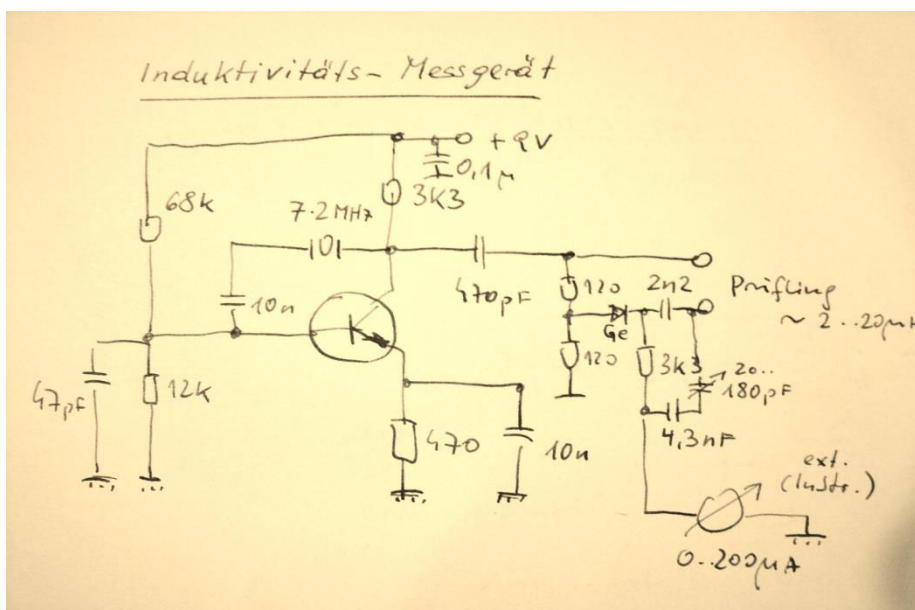 Induktivitäts-Messgerät
+9V
0,1µ
68k
3k3
7.2MHz
10n
470pF
120
2n2
Prüfling
~ 2..20µH
Ge
120
3k3
20..
180pF
47pF
12k
4,3nF
470
10n
ext.
(Instr.)
0..200µA